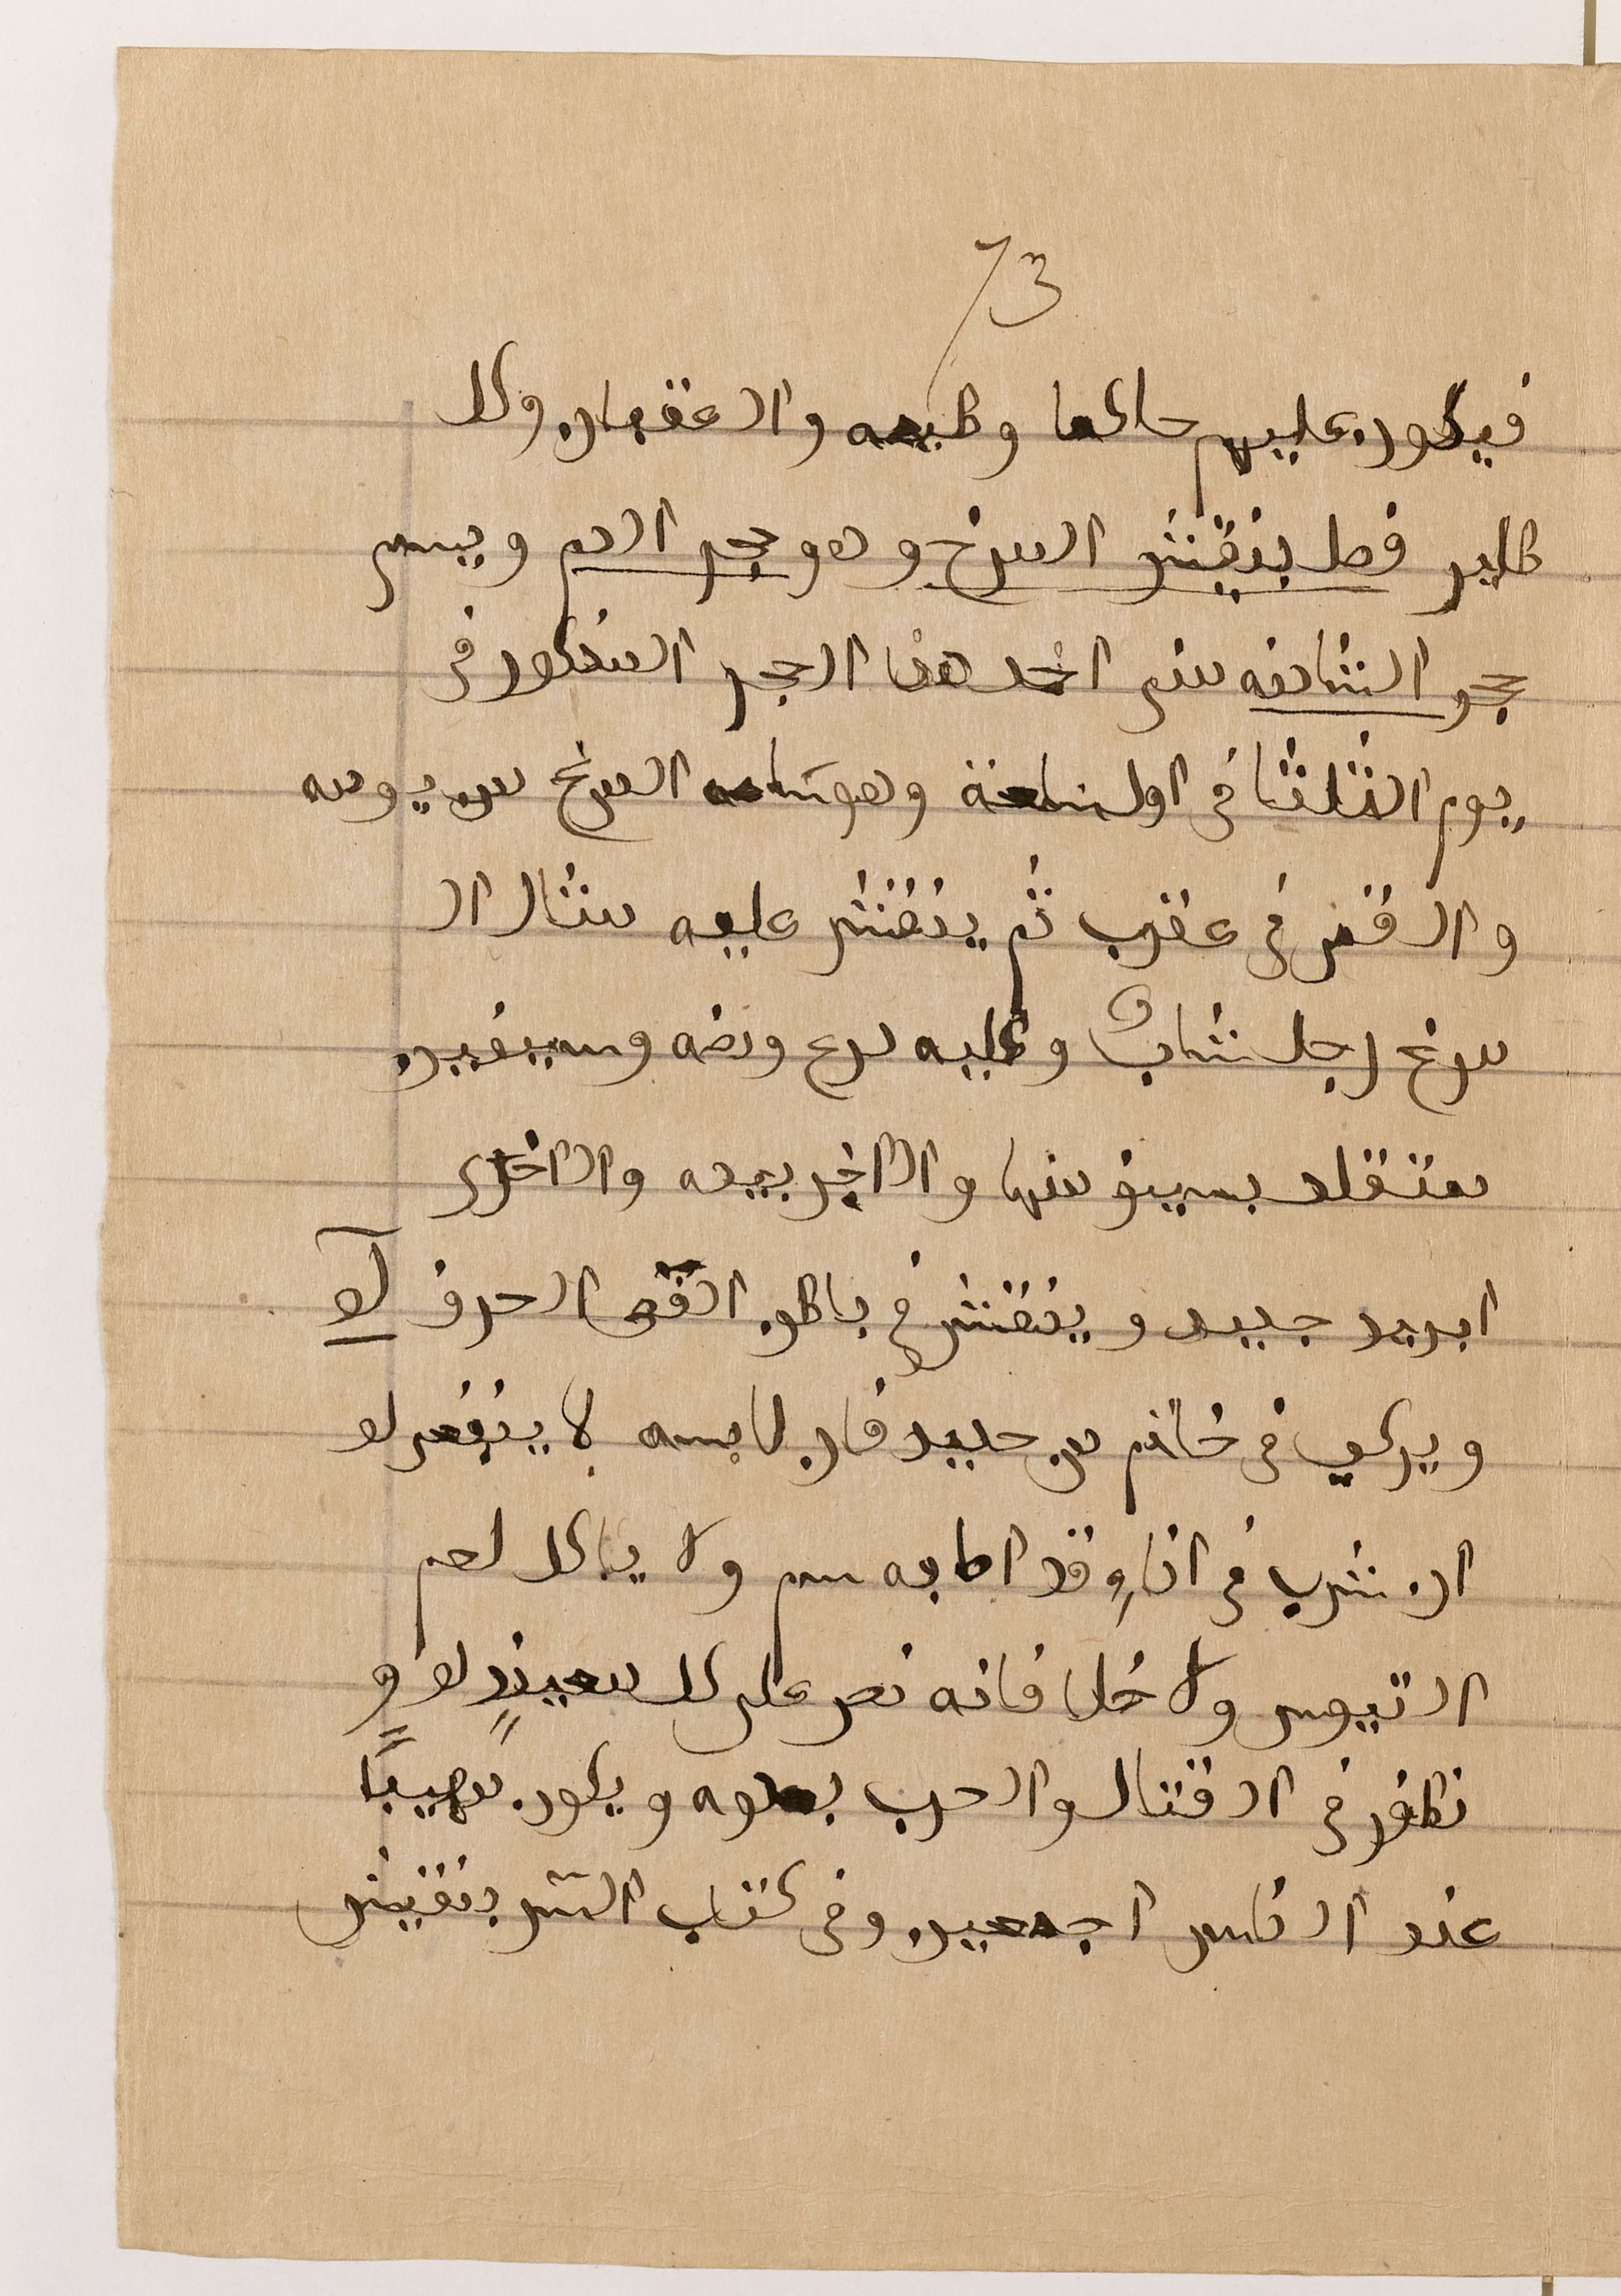 73
فيكون عليهم حاكما وطبعه والاعقبان وكل
طاير فصل بنقش المريخ وهو حجر الدم ويسمى
حجر الشادنه متى اخذ هذا الحجر المذكور فى
يوم الثلثا فى اول ساعة وهو ساعه المريخ من يومه
والقمر فى عقرب ثم ينقش عليه مثال ال
مريخ رجل شاب وعليه درع وبيضه وسيفين
متقلد بسيف منها والاخر بيده والاخرى
ابريد جديد وينقش فى باطن الفص الحرف
ويركب فى خاتم من حديد فان لابسه لا ينضر لو
ان شرب فى اناء وقد اصابه سم ولا ياكل لحم
التيوس ولا خل فانه نصر على كل معيند له و
تظفر فى القتال والحرب بعدوه ويكون مهيبًا
عند الناس اجمعين وفى كتاب السر بنقيش